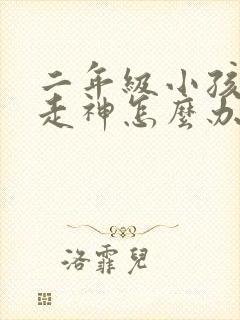 二年級小孩
走神怎麼办
洛霏兒